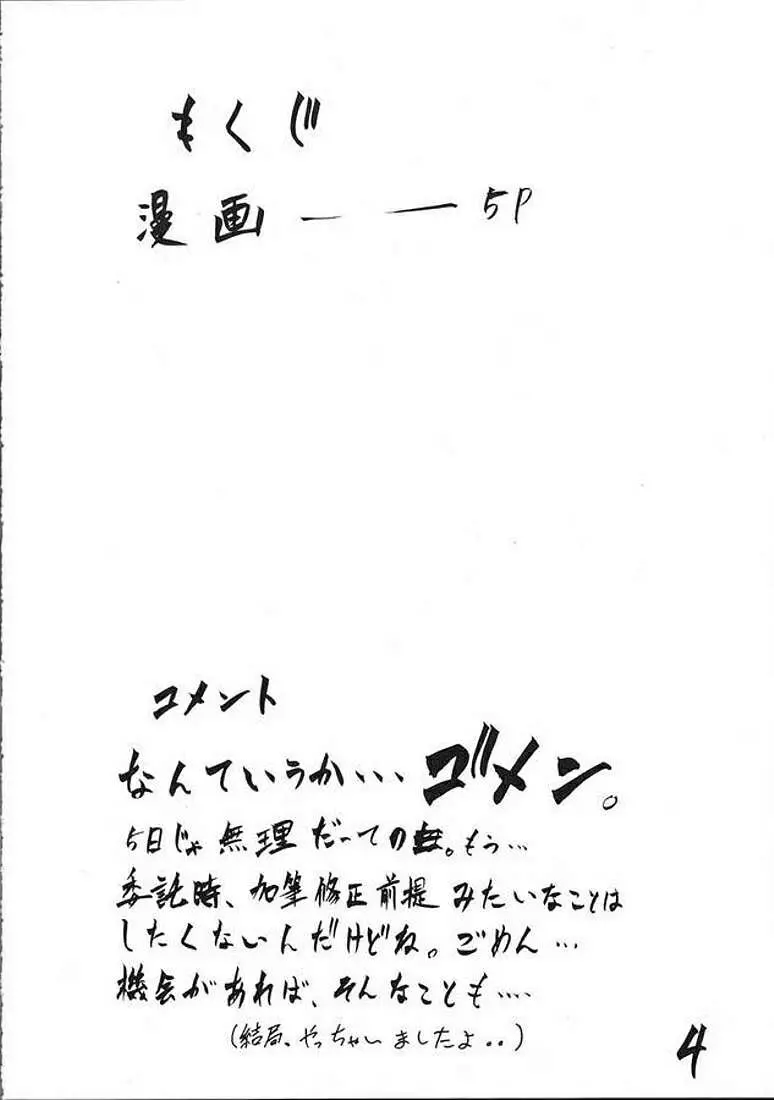 もくじ
漫画 ―― 5P
コメント
なんていうか… ゴメン。
5日じゃ無理だっての。もう…
委託時、加筆修正前提みたいなことは
したくないんだけどね。ごめん…
機会があれば、そんなことも‥‥
(結局、やっちゃいましたよ‥)
4